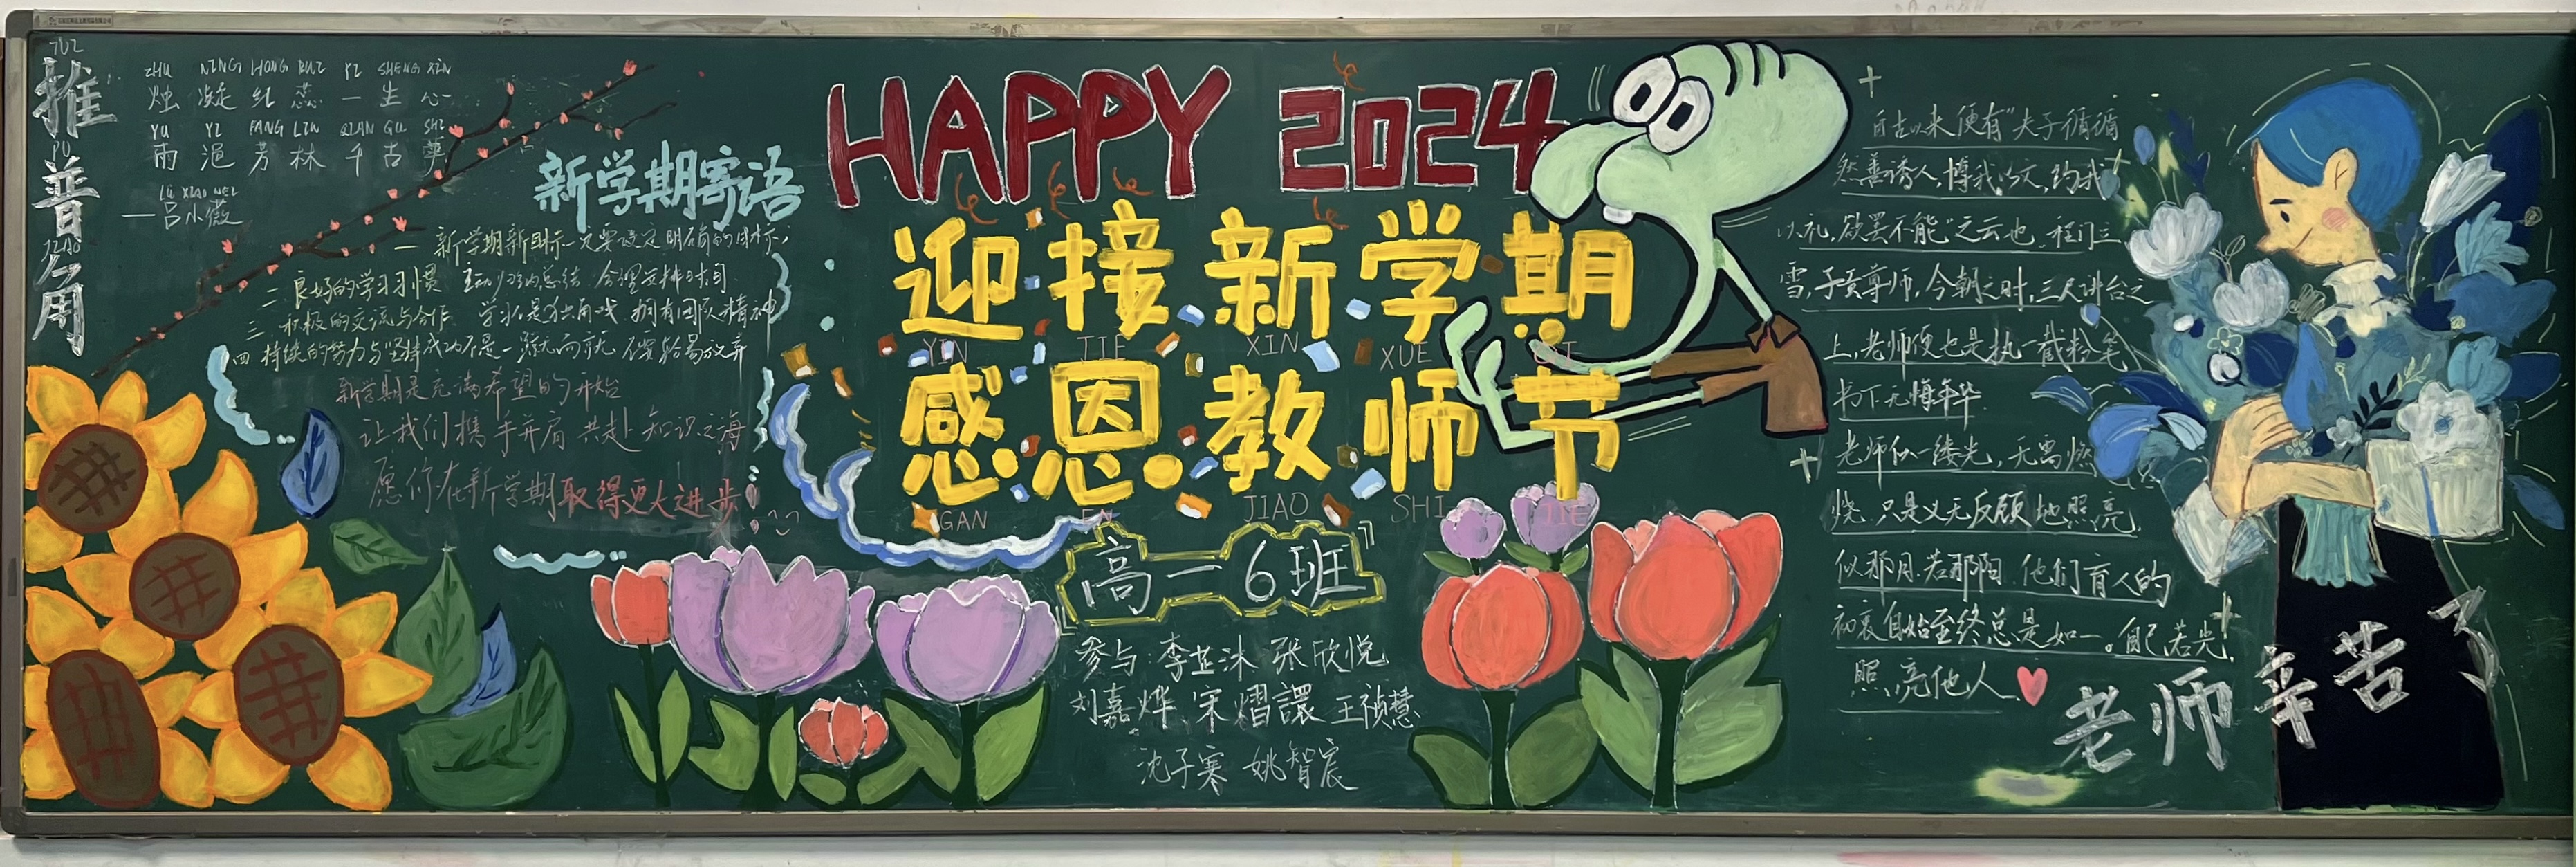 推
PU
普
周
ZHU NING HONG RUI YI SHENG XIN
烛 凝 红 蕊 一 生 心
YU YI FANG LIN QIAN GU SHI
雨 浥 芳 林 千 古 事
LU XIAO WEI
——吕小薇
新学期寄语
一 新学期新目标一定要设定明确的目标,
二 良好的学习习惯 总结 合理安排时间
三 积极的交流与合作 学习不是独角戏 拥有团队精神
四 持续的努力与坚持成功不是一蹴而就 不要轻易放弃
新学期是充满希望的开始
让我们携手并肩 共赴知识之海
愿你在新学期取得更大进步
HAPPY 2024
迎接新学期
YIN JIE XIN XUE QI
感恩教师节
GAN EN JIAO SHI JIE
高一6班
参与:李芷沐 张欣悦
刘嘉烨 宋熠譞 王祯慧
沈子寒 姚智宸
自古以来便有“夫子循循
然善诱人,博我以文,约我
以礼,欲罢不能”之云也,程门立
雪,子贡尊师,今朝之时,三尺讲台之
上,老师便也是执一截粉笔
书下无悔年华
老师似一缕光,无需燃
烧.只是义无反顾地照亮
似那月.若那阳.他们育人的
初衷自始至终总是如一。自己若光,
照亮他人
老师辛苦了